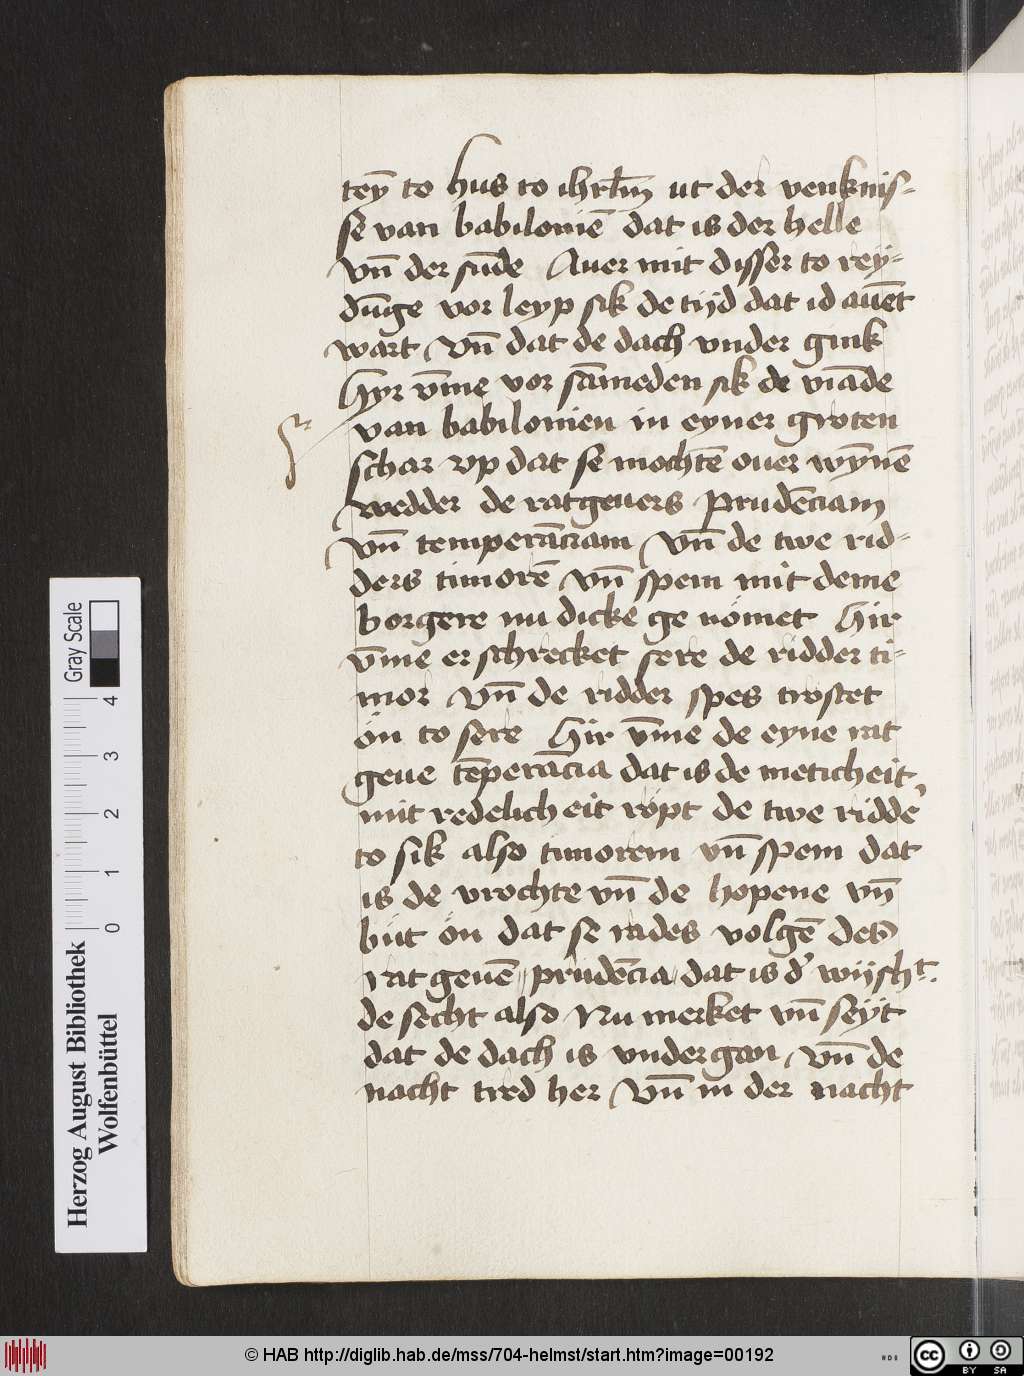 teẏ to hus to ihrl̄m ut der venknis-
se van babiloniē dat is der helle
vn̄ der sūde Auer mit disser to reẏ-
dūge vor leyp sik de tijd dat id auēt
wart vn̄ dat de dach vnder gink
Hyr v̄me vor sāmeden sik de viāde
van babilonien in eyner groten
schar vp dat se mochtē ouer wȳnē
wedder de ratgeuers prudēciam
vn̄ temperāciam vn̄ de twe rid-
ders timorē vn̄ spem mit deme
borgere nu dicke ge nömet Hir
v̄me er schrecket sere de ridder ti-
mor vn̄ de ridder spes trostet
ön to sere Hir v̄me de eyne rat
geue tēperācia dat is de meticheit
mit redelicheit röpt de twe ridde'
to sik also timorem vn̄ spem dat
is de vrochte vn̄ de hopene vn̄
büt ön dat se rades volgē des
rat geuē prudēcia dat is d' wijsht.
de secht also Nu merket vn̄ seẏt
dat de dach is vndergan vn̄ de
nacht tred her vn̄ in der nacht
Herzog August Bibliothek
Wolfenbüttel
0 1 2 3 4
Gray Scale
© HAB http://diglib.hab.de/mss/704-helmst/start.htm?image=00192
cc BY SA